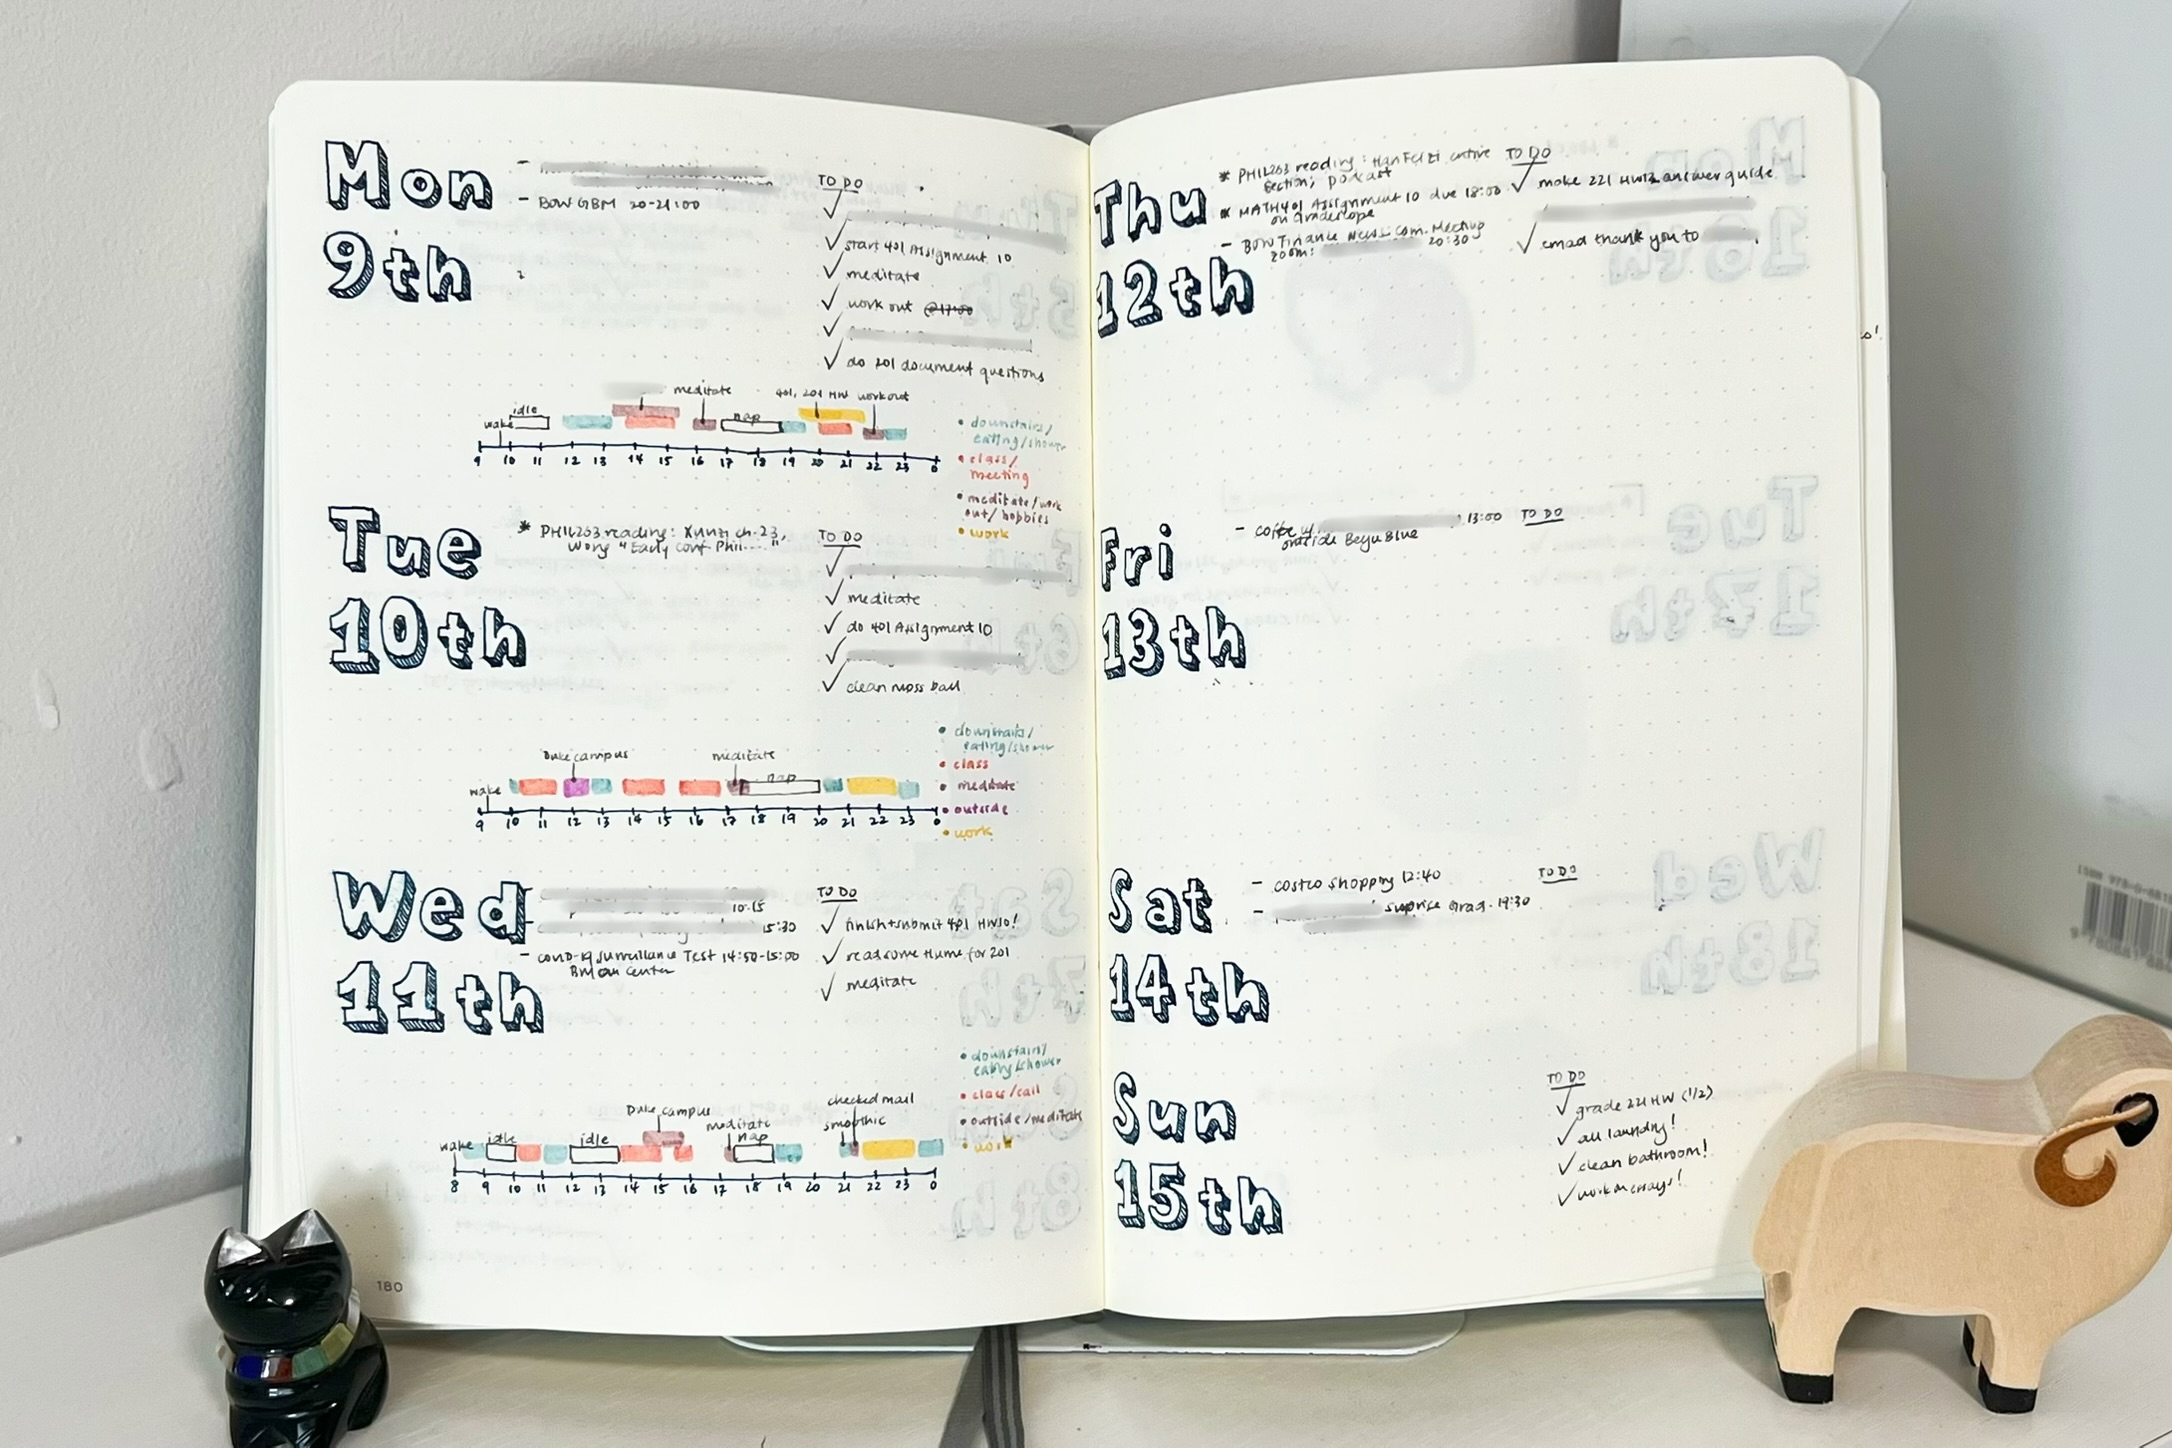 Mon
9th
- BOW GBM 20-21:00
TO DO
✓
✓ start 401 Assignment 10
✓ meditate
✓ work out @17:00
✓
✓ do 201 document questions
meditate
401, 201 HW
workout
idle
nap
wake
9 10 11 12 13 14 15 16 17 18 19 20 21 22 23 0
• downstairs/
eating/shower
• class/
meeting
• meditate/work
out/hobbies
• work
Tue
10th
* PHIL263 reading: Xunzi ch. 23,
Wong "Early Conf Phil...."
TO DO
✓
✓ meditate
✓ do 401 Assignment 10
✓
✓ clean moss ball
Duke campus
meditate
nap
wake
9 10 11 12 13 14 15 16 17 18 19 20 21 22 23 0
• downstairs/
eating/shower
• class
• meditate
• outside
• work
Wed
11th
10:15
15:30
- COVID-19 Surveillance Test 14:50-15:00
Center
TO DO
✓ finish+submit 401 HW10!
✓ read some Hume for 201
✓ meditate
Duke campus
checked mail
meditate
smoothie
wake
idle
idle
nap
8 9 10 11 12 13 14 15 16 17 18 19 20 21 22 23 0
• downstairs/
eating/shower
• class/call
• outside/meditate
• work
180
Thu
12th
* PHIL263 reading: Han Feizi entire
section; podcast
* MATH401 Assignment 10 due 18:00
on Gradescope
- BOW Finance News Com. Meeting
Zoom: 20:30
TO DO
✓ make 221 HW12 answer guide
✓ email thank you to
Fri
13th
- coffee w/ 13:00
outside Beyu Blue
TO DO
Sat
14th
- costco shopping 12:40
- surprise grad. 19:30
TO DO
Sun
15th
TO DO
✓ grade 221 HW (1/2)
✓ all laundry!
✓ clean bathroom!
✓ work on essays!